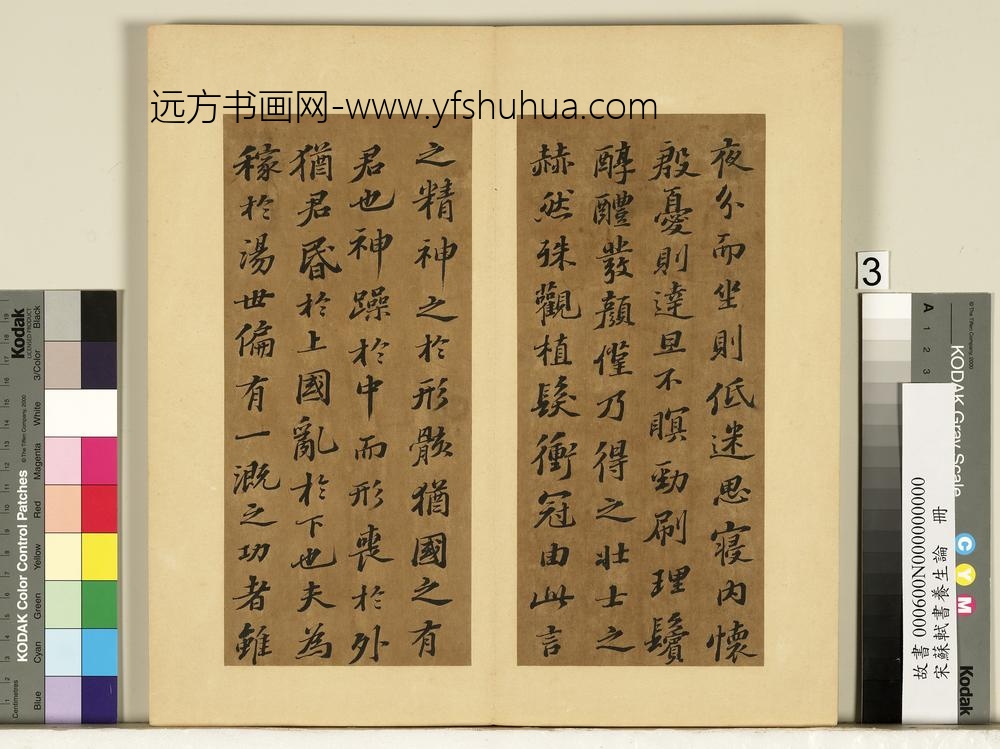 远方书画网-www.yfshuhua.com
夜分而坐則低迷思寢内懷
殷憂則達旦不瞑勁刷理鬢
醇醴發顏僅乃得之壯士之
赫然殊觀植髮衝冠由此言
之精神之於形骸猶國之有
君也神躁於中而形喪於外
猶君昬於上國亂於下也夫為
稼於湯世偏有一溉之功者雖
3
故書000600N000000000
宋蘇軾書養生論 冊
KODAK Gray Scale
A 1 2 3
C Y M
Kodak
KODAK Color Control Patches
Kodak
LICENSED PRODUCT
© The Tiffen Company, 2000
Centimetres
Blue
Cyan
Green
Yellow
Red
Magenta
White
3/Color
Black